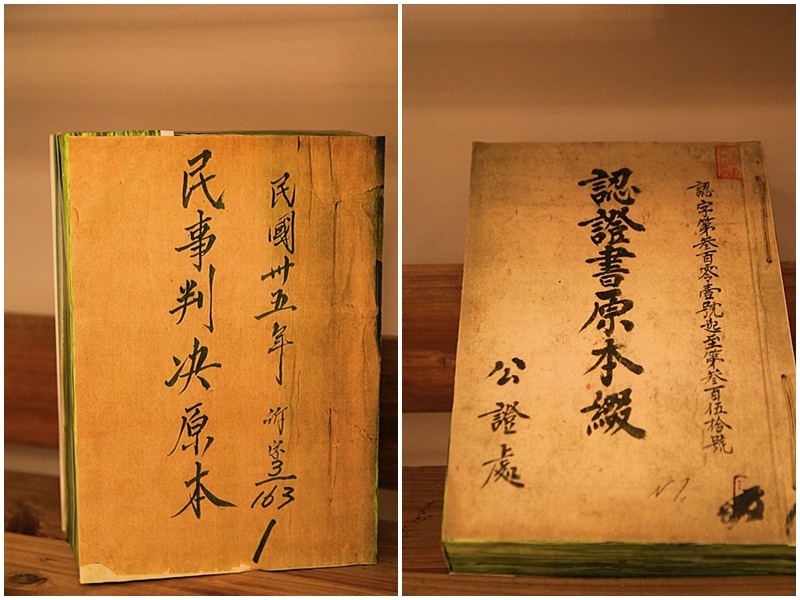 民國卅五年 訴字3/163
民事判決原本
認字第叁百零壹號起至第叁百伍拾號
認證書原本綴
公證處